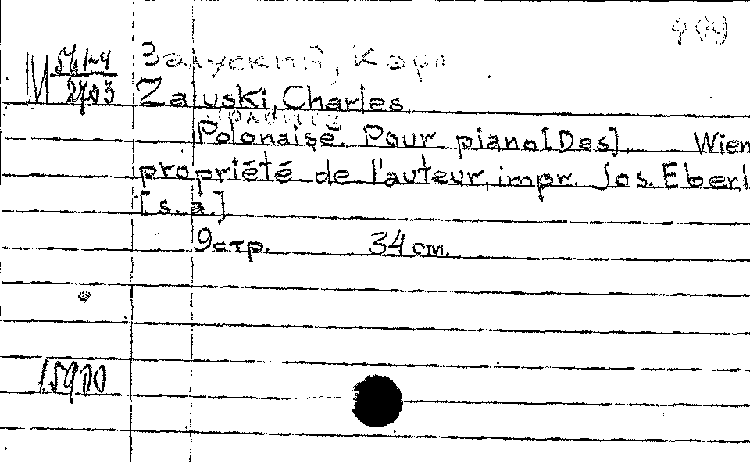 Залуский, Карл
Zaluski, Charles
Polonaise. Pour piano [Des]. Wien
propriété de l'auteur, impr. Jos. Eberl
[s.a.]
9 стр. 34 cm.
15900